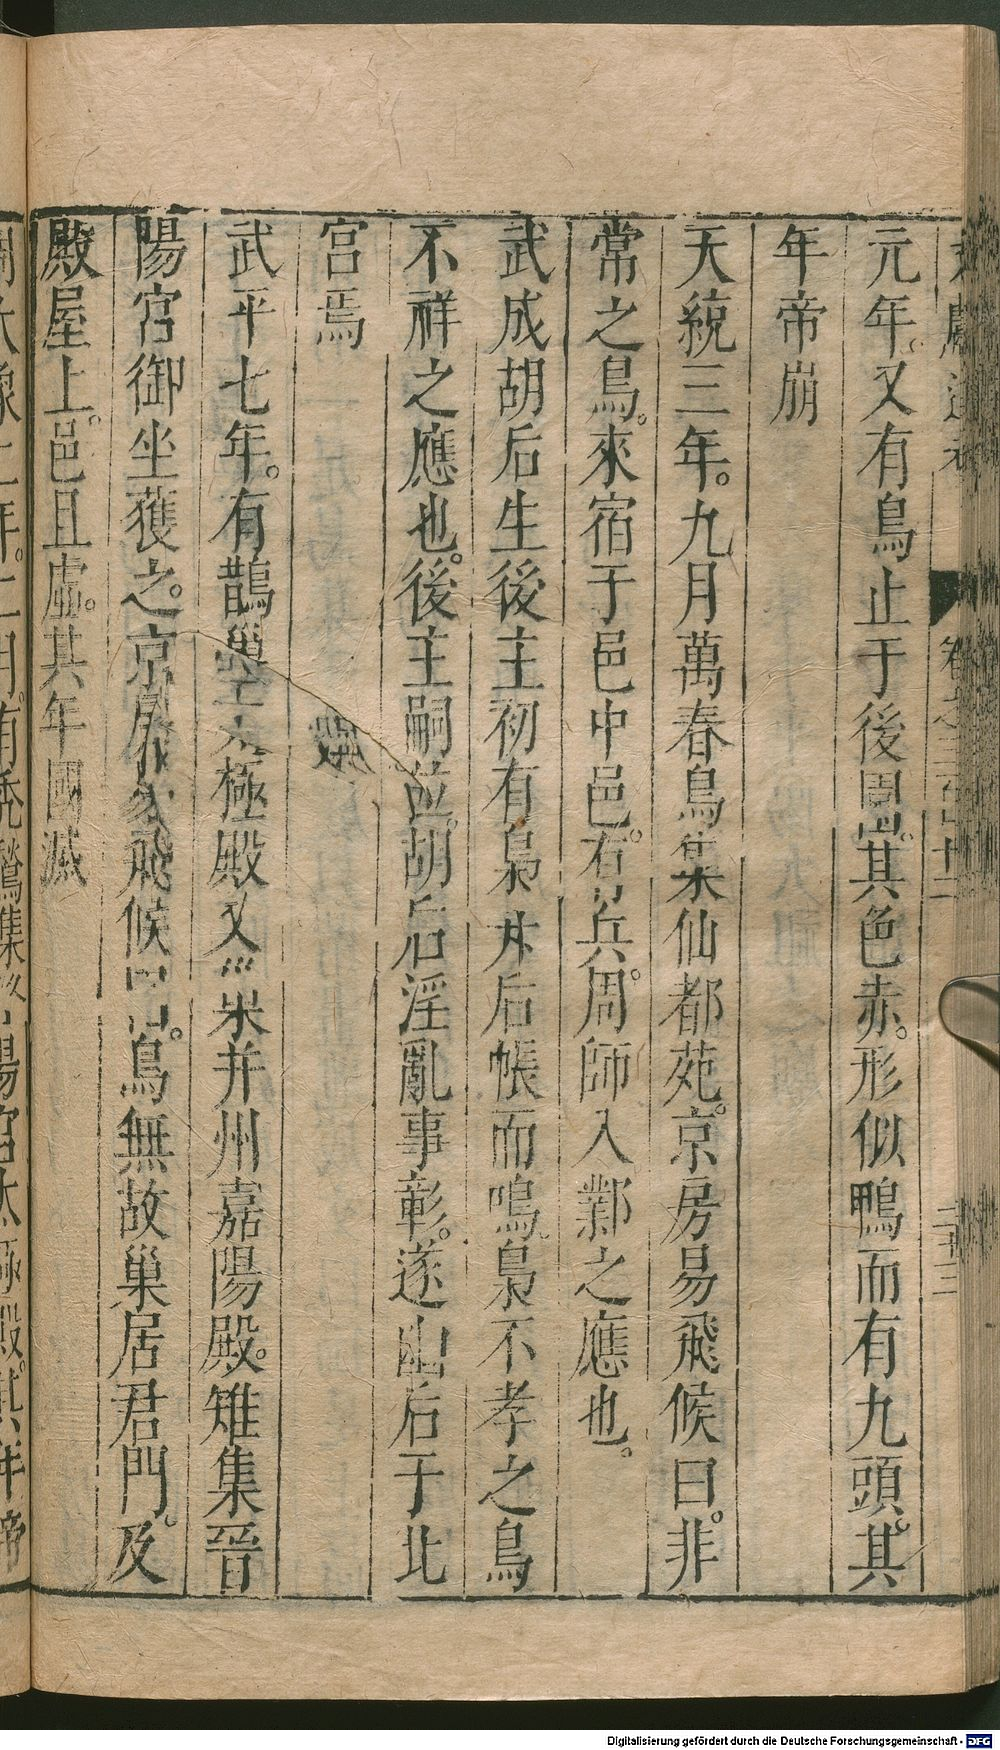 元年。又有鳥止于後園。其色赤。形似鴨而有九頭。其
年帝崩
天統三年。九月萬春鳥集仙都苑。京房易飛候曰。非
常之鳥。來宿于邑中邑。有兵。周師入鄴之應也。
武成胡后生後主初有梟升后帳而鳴。梟不孝之鳥
不祥之應也。後主嗣位。胡后淫亂事彰。遂幽后于北
宮焉
武平七年。有鵲巢太極殿又巢并州嘉陽殿。雉集晉
陽宮御坐獲之。京房易飛候曰。鳥無故巢居君門。及
殿屋上。邑且虛。其年國滅
Digitalisierung gefördert durch die Deutsche Forschungsgemeinschaft - DFG